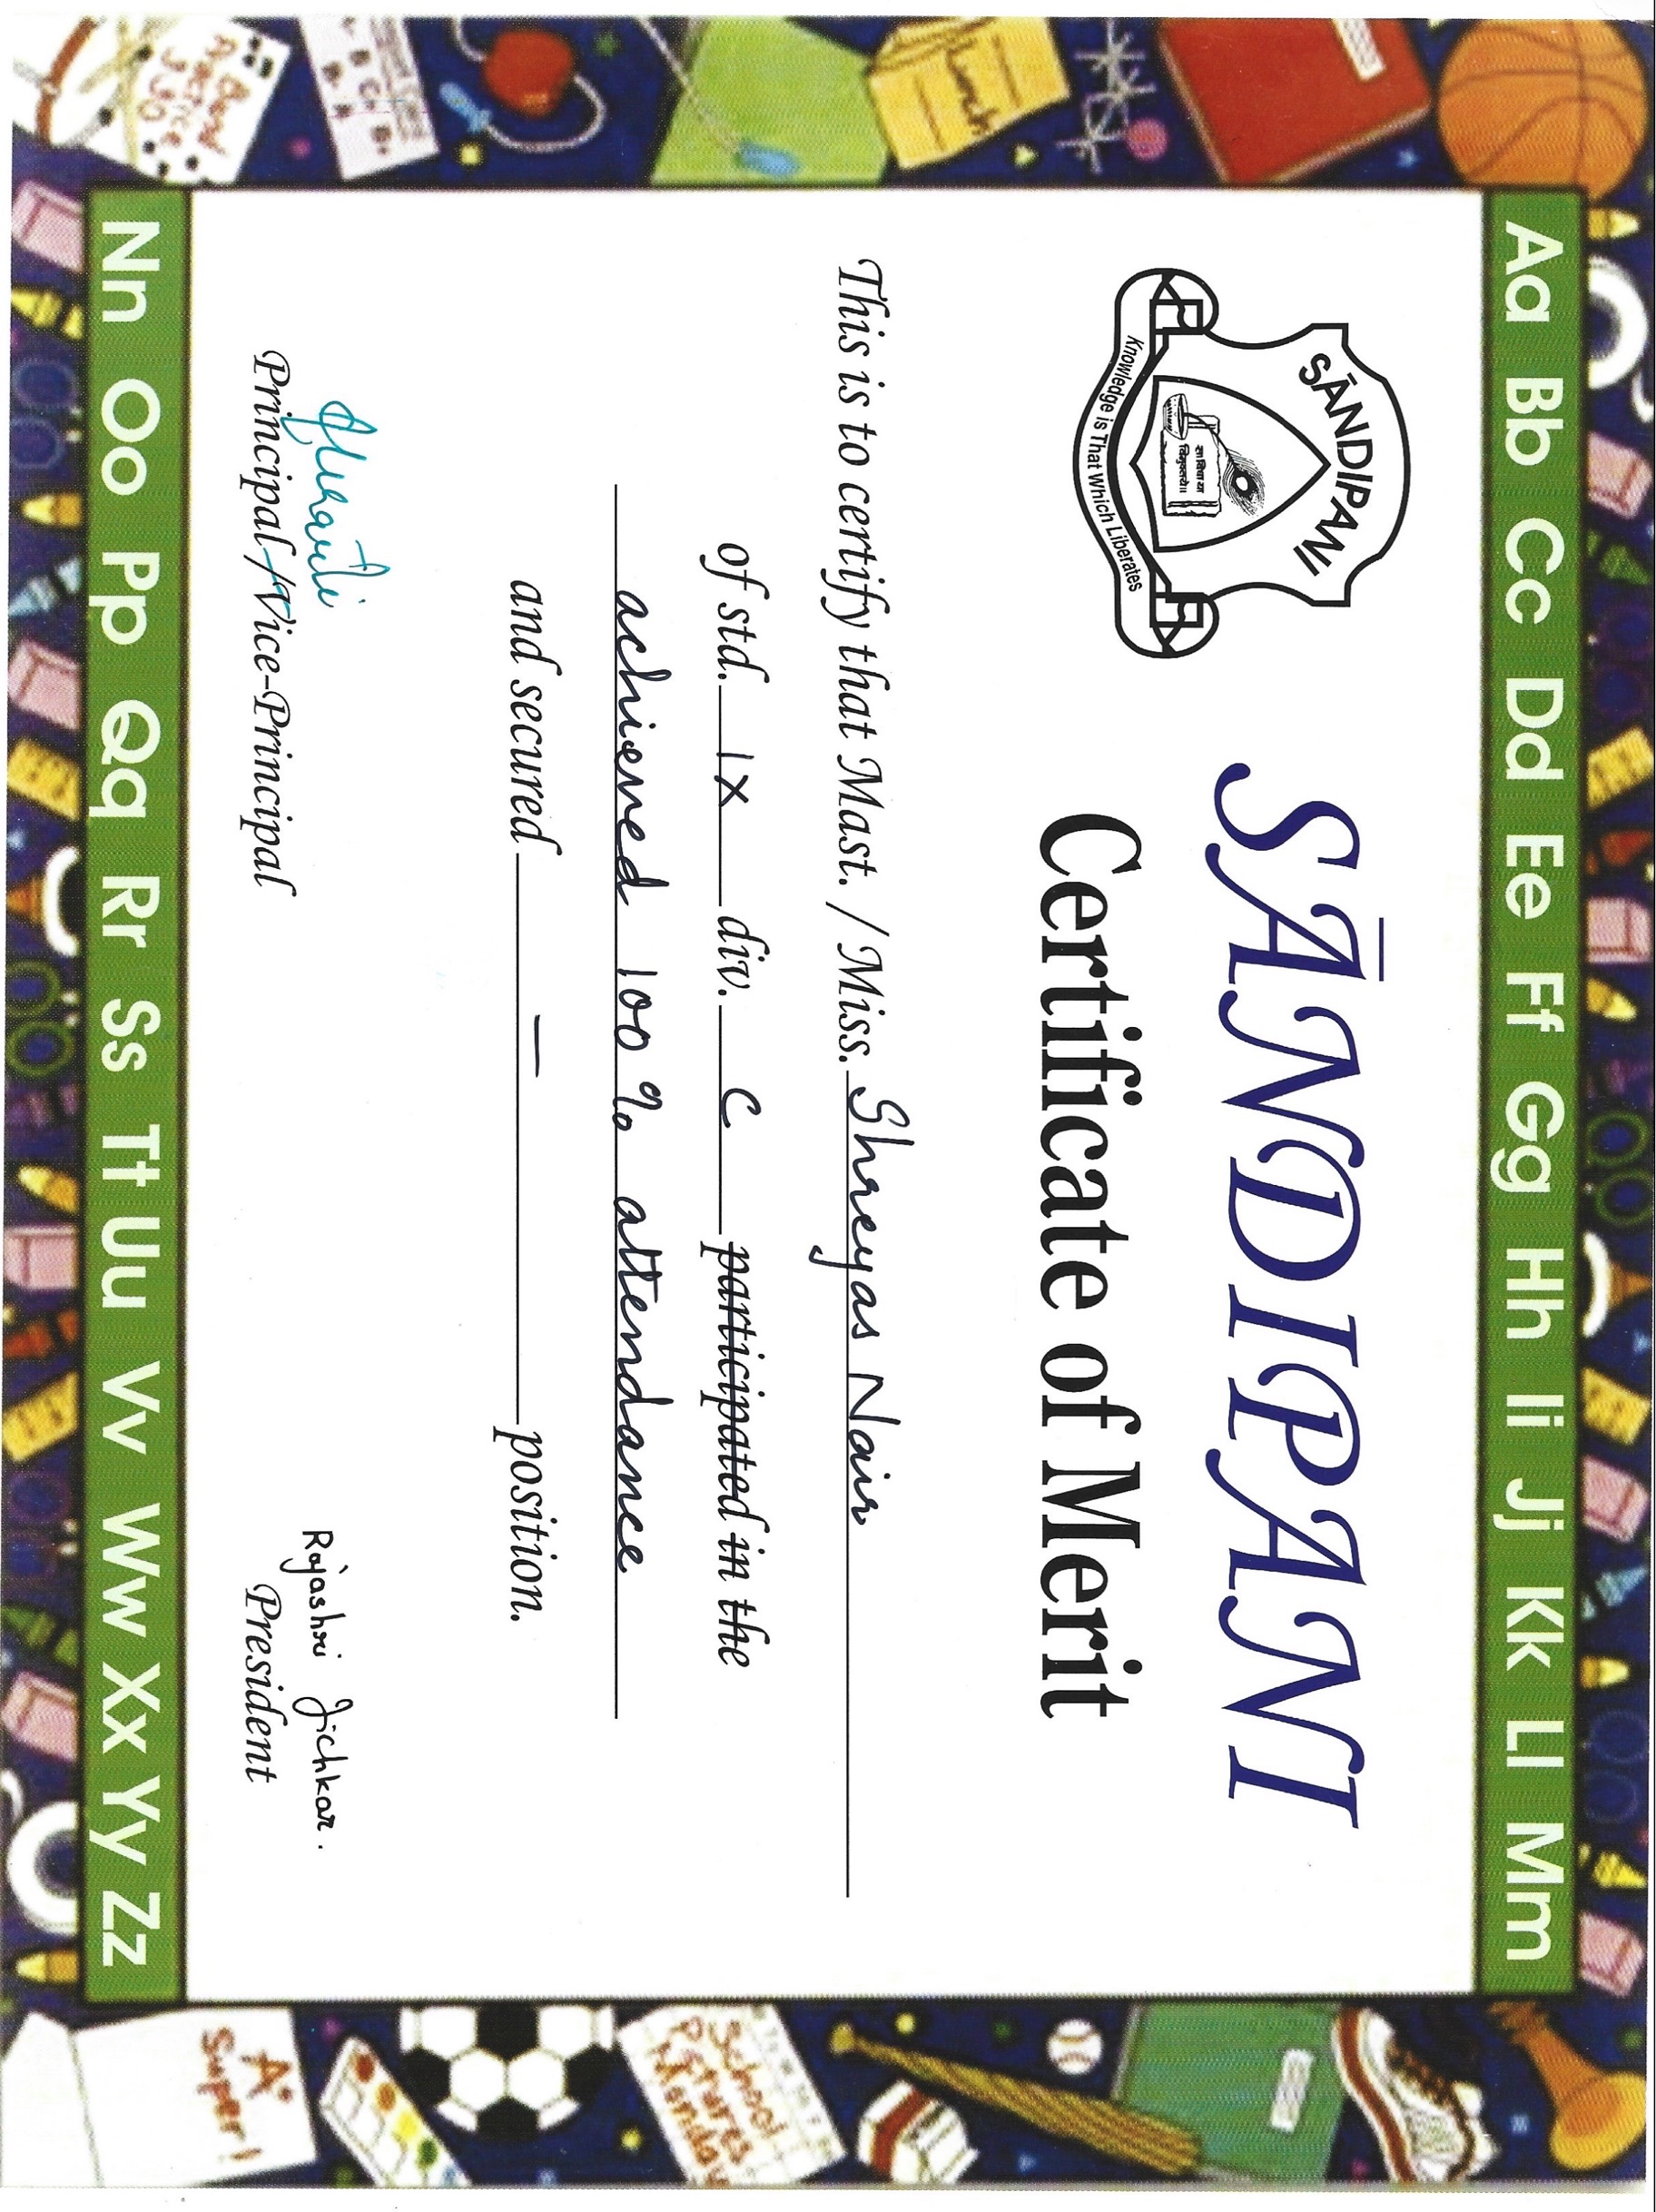 Aa Bb Cc Dd Ee Ff Gg Hh Ii Jj Kk Ll Mm
SĀNDIPANI
सा विद्या या
विमुक्तये॥
Knowledge is That Which Liberates
SĀNDIPANI
Certificate of Merit
This is to certify that Mast. / Miss. Shreyas Nair
of std. IX div. C participated in the
achieved 100 % attendance
and secured — position.
Rajashri Jichkar.
Principal / Vice-Principal
President
Nn Oo Pp Qq Rr Ss Tt Uu Vv Ww Xx Yy Zz
Lunch
Band
Practice
3:30
School
Pictures
Monday
A+
Super!